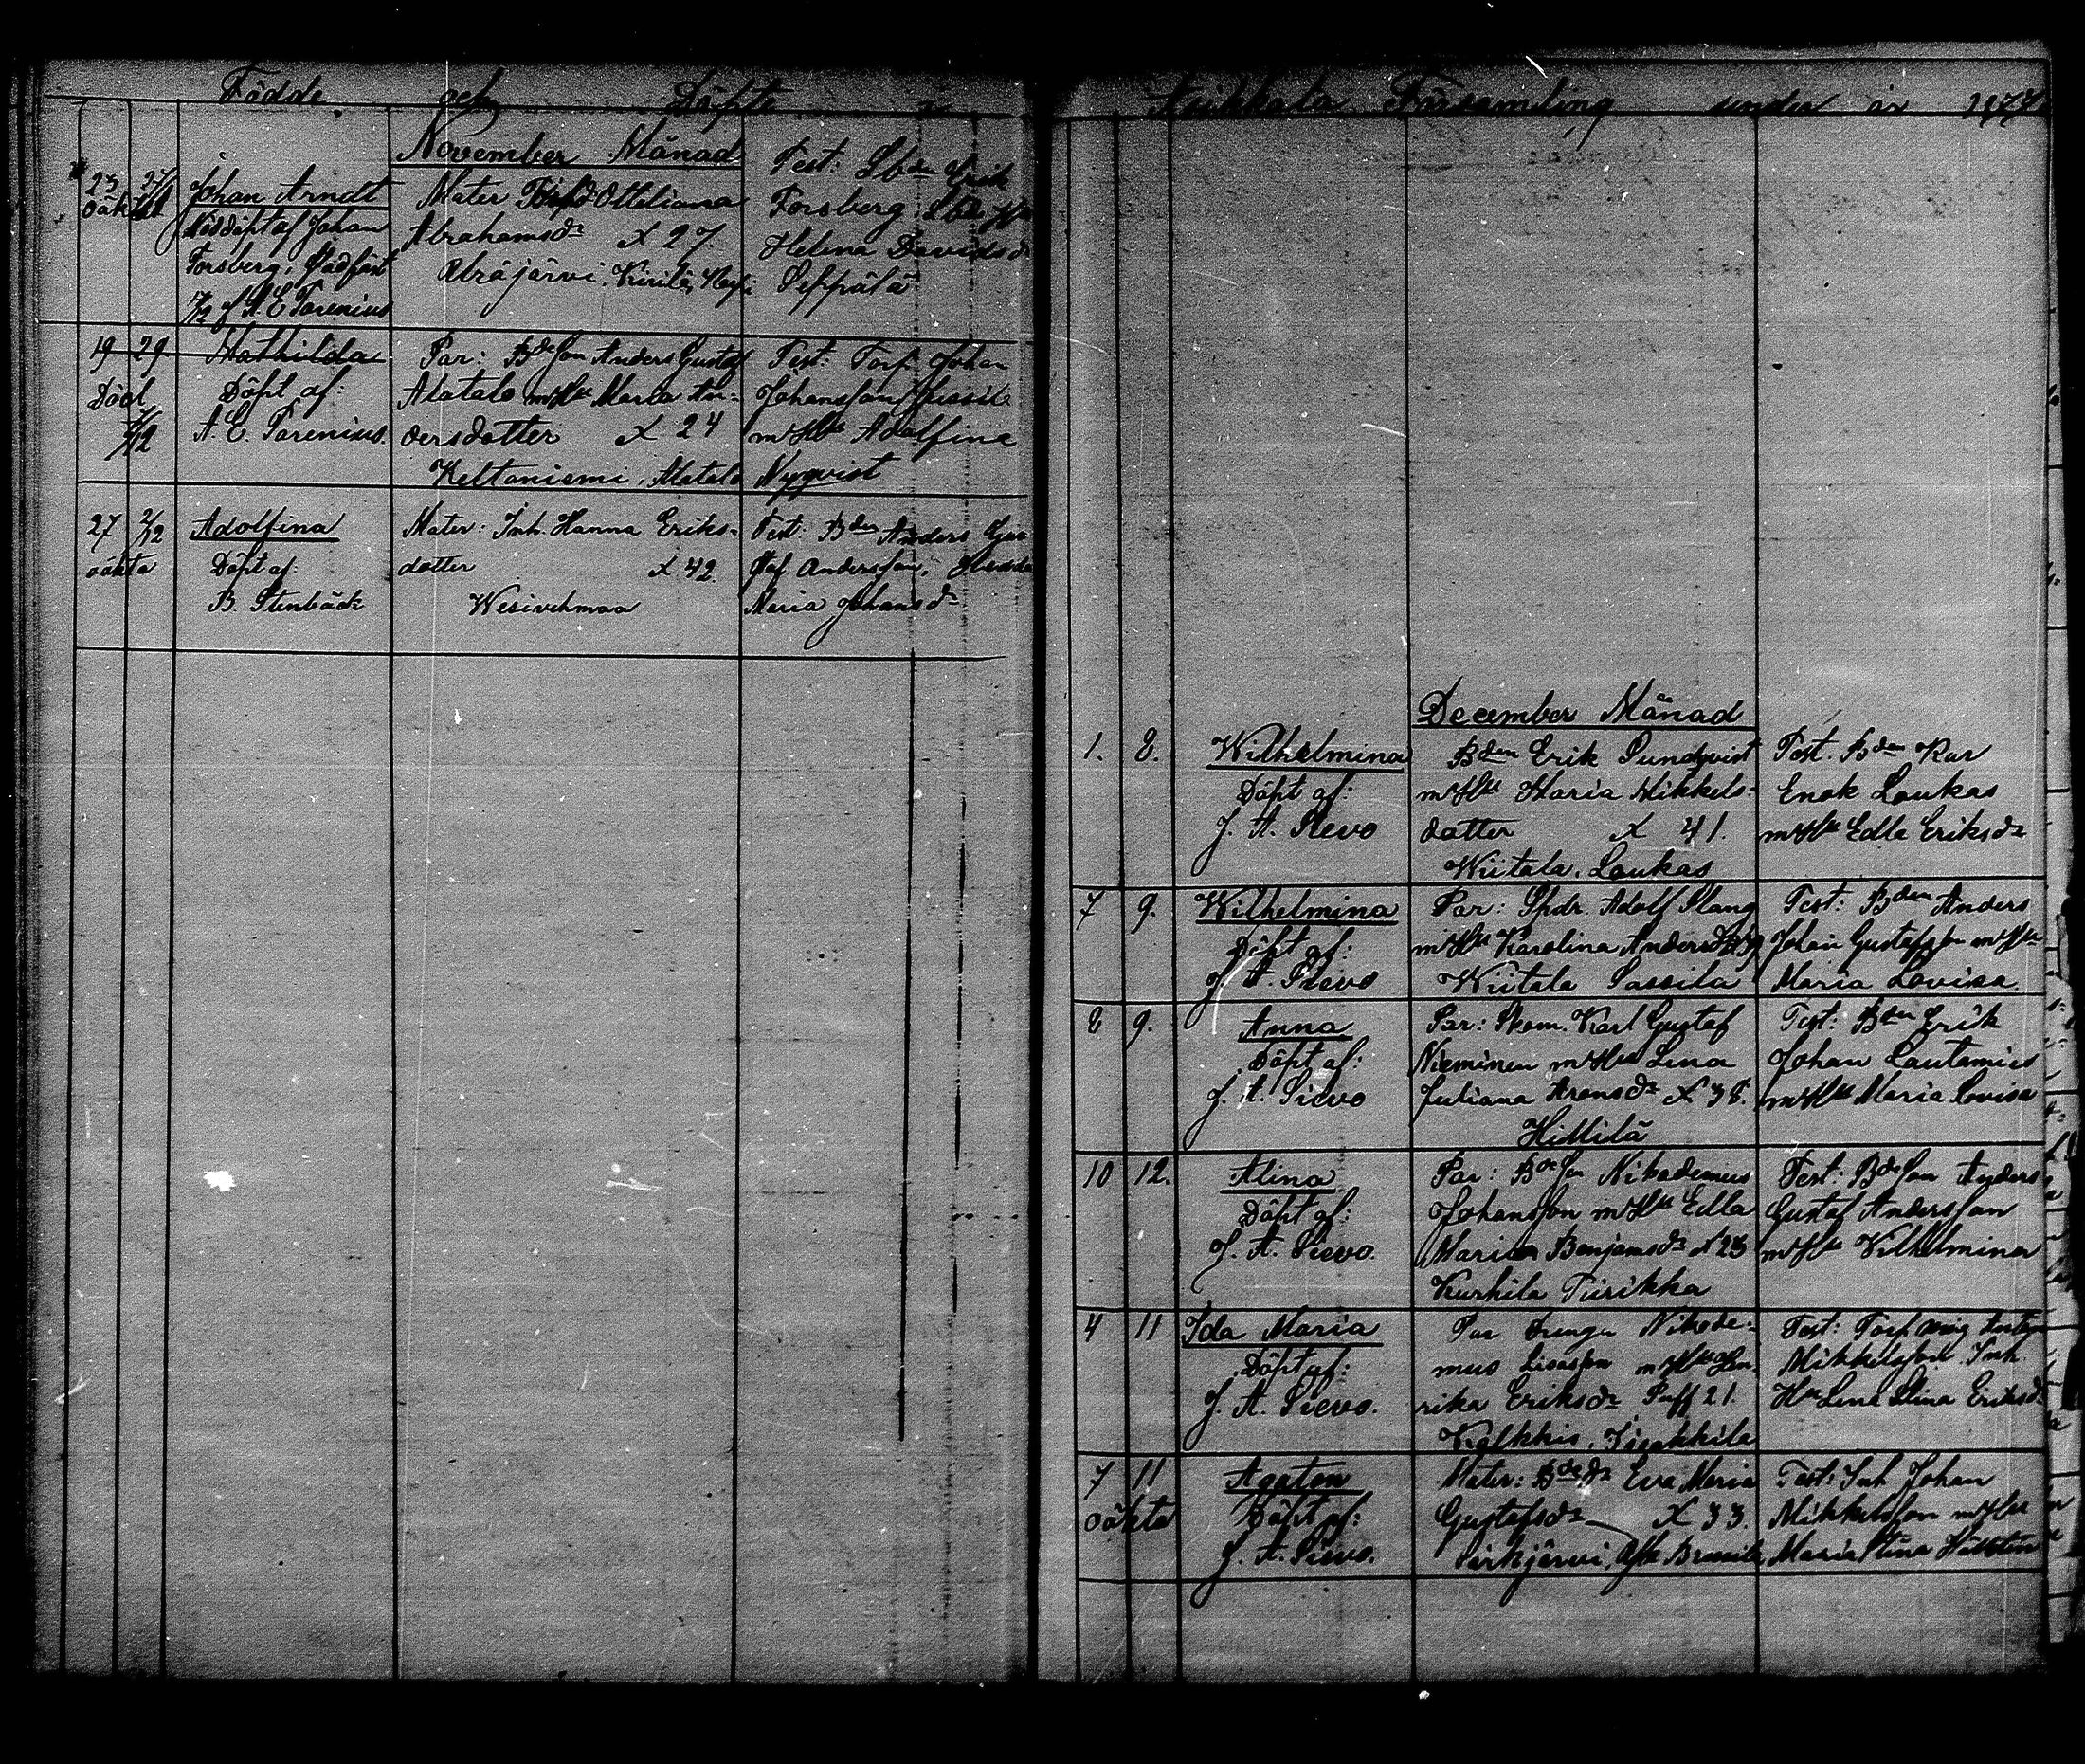 Födde och Döpte
November Månad
23 27/11
oäkta
Johan Arndt
Nöddöpt af Johan
Forsberg, Stadfäst
7/12 af A. E Torenius
Mater Otteliana
Abrahamsdr x 27.
Kirilä,
Test: Lbdn Erik
Forsberg,
Helena Davidsdr
Seppälä
19 29
Död
7/12
Mathilda
Döpt af:
A. E. Torenius.
Par: Bdeson Anders Gustaf
Alatalo m Hu Maria An-
dersdotter x 24
Keltaniemi, Alatalo
Test: Torp. Johan
Johansson
m Hu Adolfina
Nyqvist
27 2/12
oäkta
Adolfina
Döpt af:
B Stenbäck
Mater: Inh. Hanna Eriks-
dotter x 42.
Wesivehmaa
Test: Bden Anders Gus
taf Andersson,
Maria Johansdr
Asikkala Församling under år 1877
December Månad
1. 8.
Wilhelmina
Döpt af:
J. A. Sievo
Bden Erik Sundqvist
m Hu Maria Mikkels-
datter x 41.
Wiitala, Laukas
Test. Bden Kar
Enok Laukas
m Hu Edla Eriksdr
7 9.
Wilhelmina
Döpt af:
J. A. Sievo
Par: Spdr. Adolf Stang
m Hu Karolina Andersdr
Wiitala Sassila
Test: Bden Anders
Johan Gustafsson m Hu
Maria Lovisa
8 9.
Anna
Döpt af:
J. A. Sievo
Par: Skom. Karl Gustaf
Nieminen m Hu Lena
Juliana Aronsdr x 38.
Hillilä
Test: Bden Erik
Johan Lautamies
m Hu Maria Lovisa
10 12.
Alina
Döpt af:
J. A. Sievo.
Par: Bdeson Nikodemus
Johansson m Hu Edla
Maria Benjamsdr x 23
Kurhila Tiirikka
Test: Bdeson Anders
Gustaf Andersson
m Hu Vilhelmina
4 11
Ida Maria
Döpt af:
J. A. Sievo.
Par Drengn Nikode-
mus m Hu Hen-
rika Eriksdr 21.
Kalkkis, Iisakkila
Test: Torp
Mikkelsson Inh.
Hu Lena Stina Eriksdr
7 11
oäkta
Agaton
Döpt af:
J. A. Sievo.
Mater: Bdedr Eva Maria
Gustafsdr x 33.
Test: Inh Johan
Mikkelsson m Hu
Maria Stina